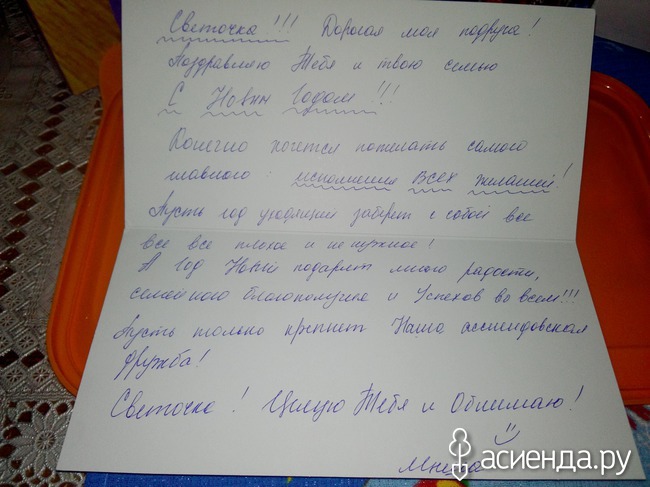 Светочка!!! Дорогая моя подруга!
Поздравляю Тебя и твою семью
С Новым Годом!!!
Конечно хочется пожелать самого
главного: исполнения Всех желаний!
Пусть год уходящий заберет с собой все
все все плохое и не нужное!
А Год Новый подарит много радости,
семейного благополучия и Успехов во всем!!!
Пусть только крепнет Наша асиендовская
дружба!
Светочка! Целую Тебя и Обнимаю!
асиенда.ру